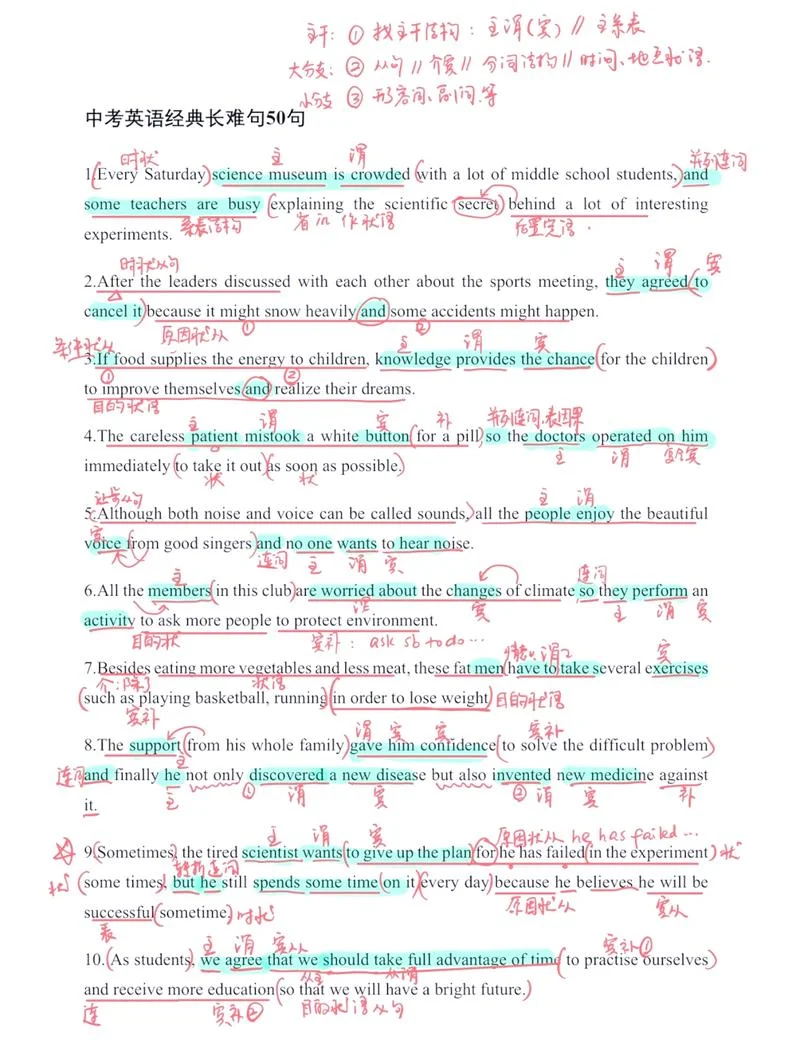 主干: ① 找主干结构: 主谓(宾) // 主系表
大分支: ② 从句 // 介宾 // 分词结构 // 时间、地点状语.
小分支 ③ 形容词、副词.等
中考英语经典长难句50句
时状 主 谓 并列连词
1.(Every Saturday) science museum is crowded (with a lot of middle school students,) and
some teachers are busy (explaining the scientific secret) behind a lot of interesting
系表结构 省in 作状语 后置定语
experiments.
时状从句 主 谓 宾
2.After the leaders discussed with each other about the sports meeting, they agreed (to
cancel it) because it might snow heavily and some accidents might happen.
原因状从 ① ②
条件状从 主 谓 宾
3.If food supplies the energy to children, knowledge provides the chance (for the children)
① ②
to improve themselves and realize their dreams.
目的状语
主 谓 宾 补 并列连词.表因果
4.The careless patient mistook a white button (for a pill) so the doctors operated on him
主 谓 宾
immediately (to take it out) (as soon as possible.)
状 状
让步从句 主 谓
5.(Although both noise and voice can be called sounds,) all the people enjoy the beautiful
宾
voice (from good singers) and no one wants to hear noise.
连词 主 谓 宾
主 连词
6.All the members (in this club) are worried about the changes of climate so they perform an
谓 宾 主 谓 宾
activity to ask more people to protect environment.
目的状 宾补: ask sb to do...
谓 宾
7.Besides eating more vegetables and less meat, these fat men (have to take several exercises
介:除了 状语
(such as playing basketball, running) (in order to lose weight) 目的状语
宾补
谓 宾 宾 宾补
8.The support (from his whole family) gave him confidence (to solve the difficult problem)
主
连词 and finally he not only discovered a new disease but also invented new medicine against
主 ① 谓 宾 ② 谓 宾 补
it.
主 谓 宾 原因状从 he has failed...
9.(Sometimes), the tired scientist wants (to give up the plan) for he has failed (in the experiment) 状
转折连词
状 (some times), but he still spends some time (on it) (every day) because he believes he will be
原因状从 宾从
successful (sometime.) 时状
表
主 谓 宾从 宾补①
10.(As students), we agree that we should take full advantage of time (to practise ourselves)
从主 从谓
and receive more education (so that we will have a bright future.)
连 宾补② 目的状语从句